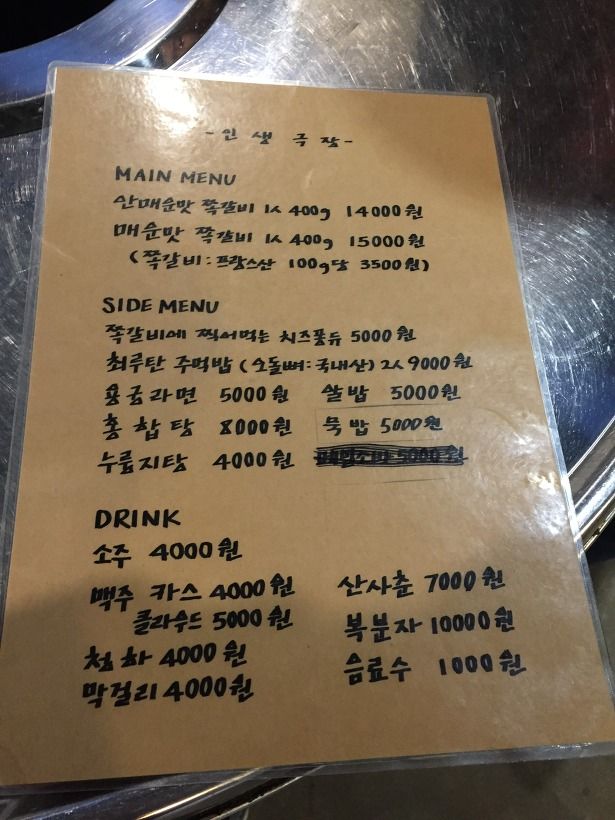 - 인 생 극 장 -
MAIN MENU
안매운맛 쪽갈비 1人 400g 14000원
매운맛 쪽갈비 1人 400g 15000원
(쪽갈비 : 프랑스산 100g당 3500원)
SIDE MENU
쪽갈비에 찍어먹는 치즈퐁듀 5000원
최루탄 주먹밥 (오돌뼈:국내산) 2人 9000원
용궁라면 5000원 쌀밥 5000원
홍합탕 8000원 묵밥 5000원
누룽지탕 4000원 5000원
DRINK
소주 4000원
맥주 카스 4000원 산사춘 7000원
클라우드 5000원 복분자 10000원
청하 4000원 음료수 1000원
막걸리 4000원